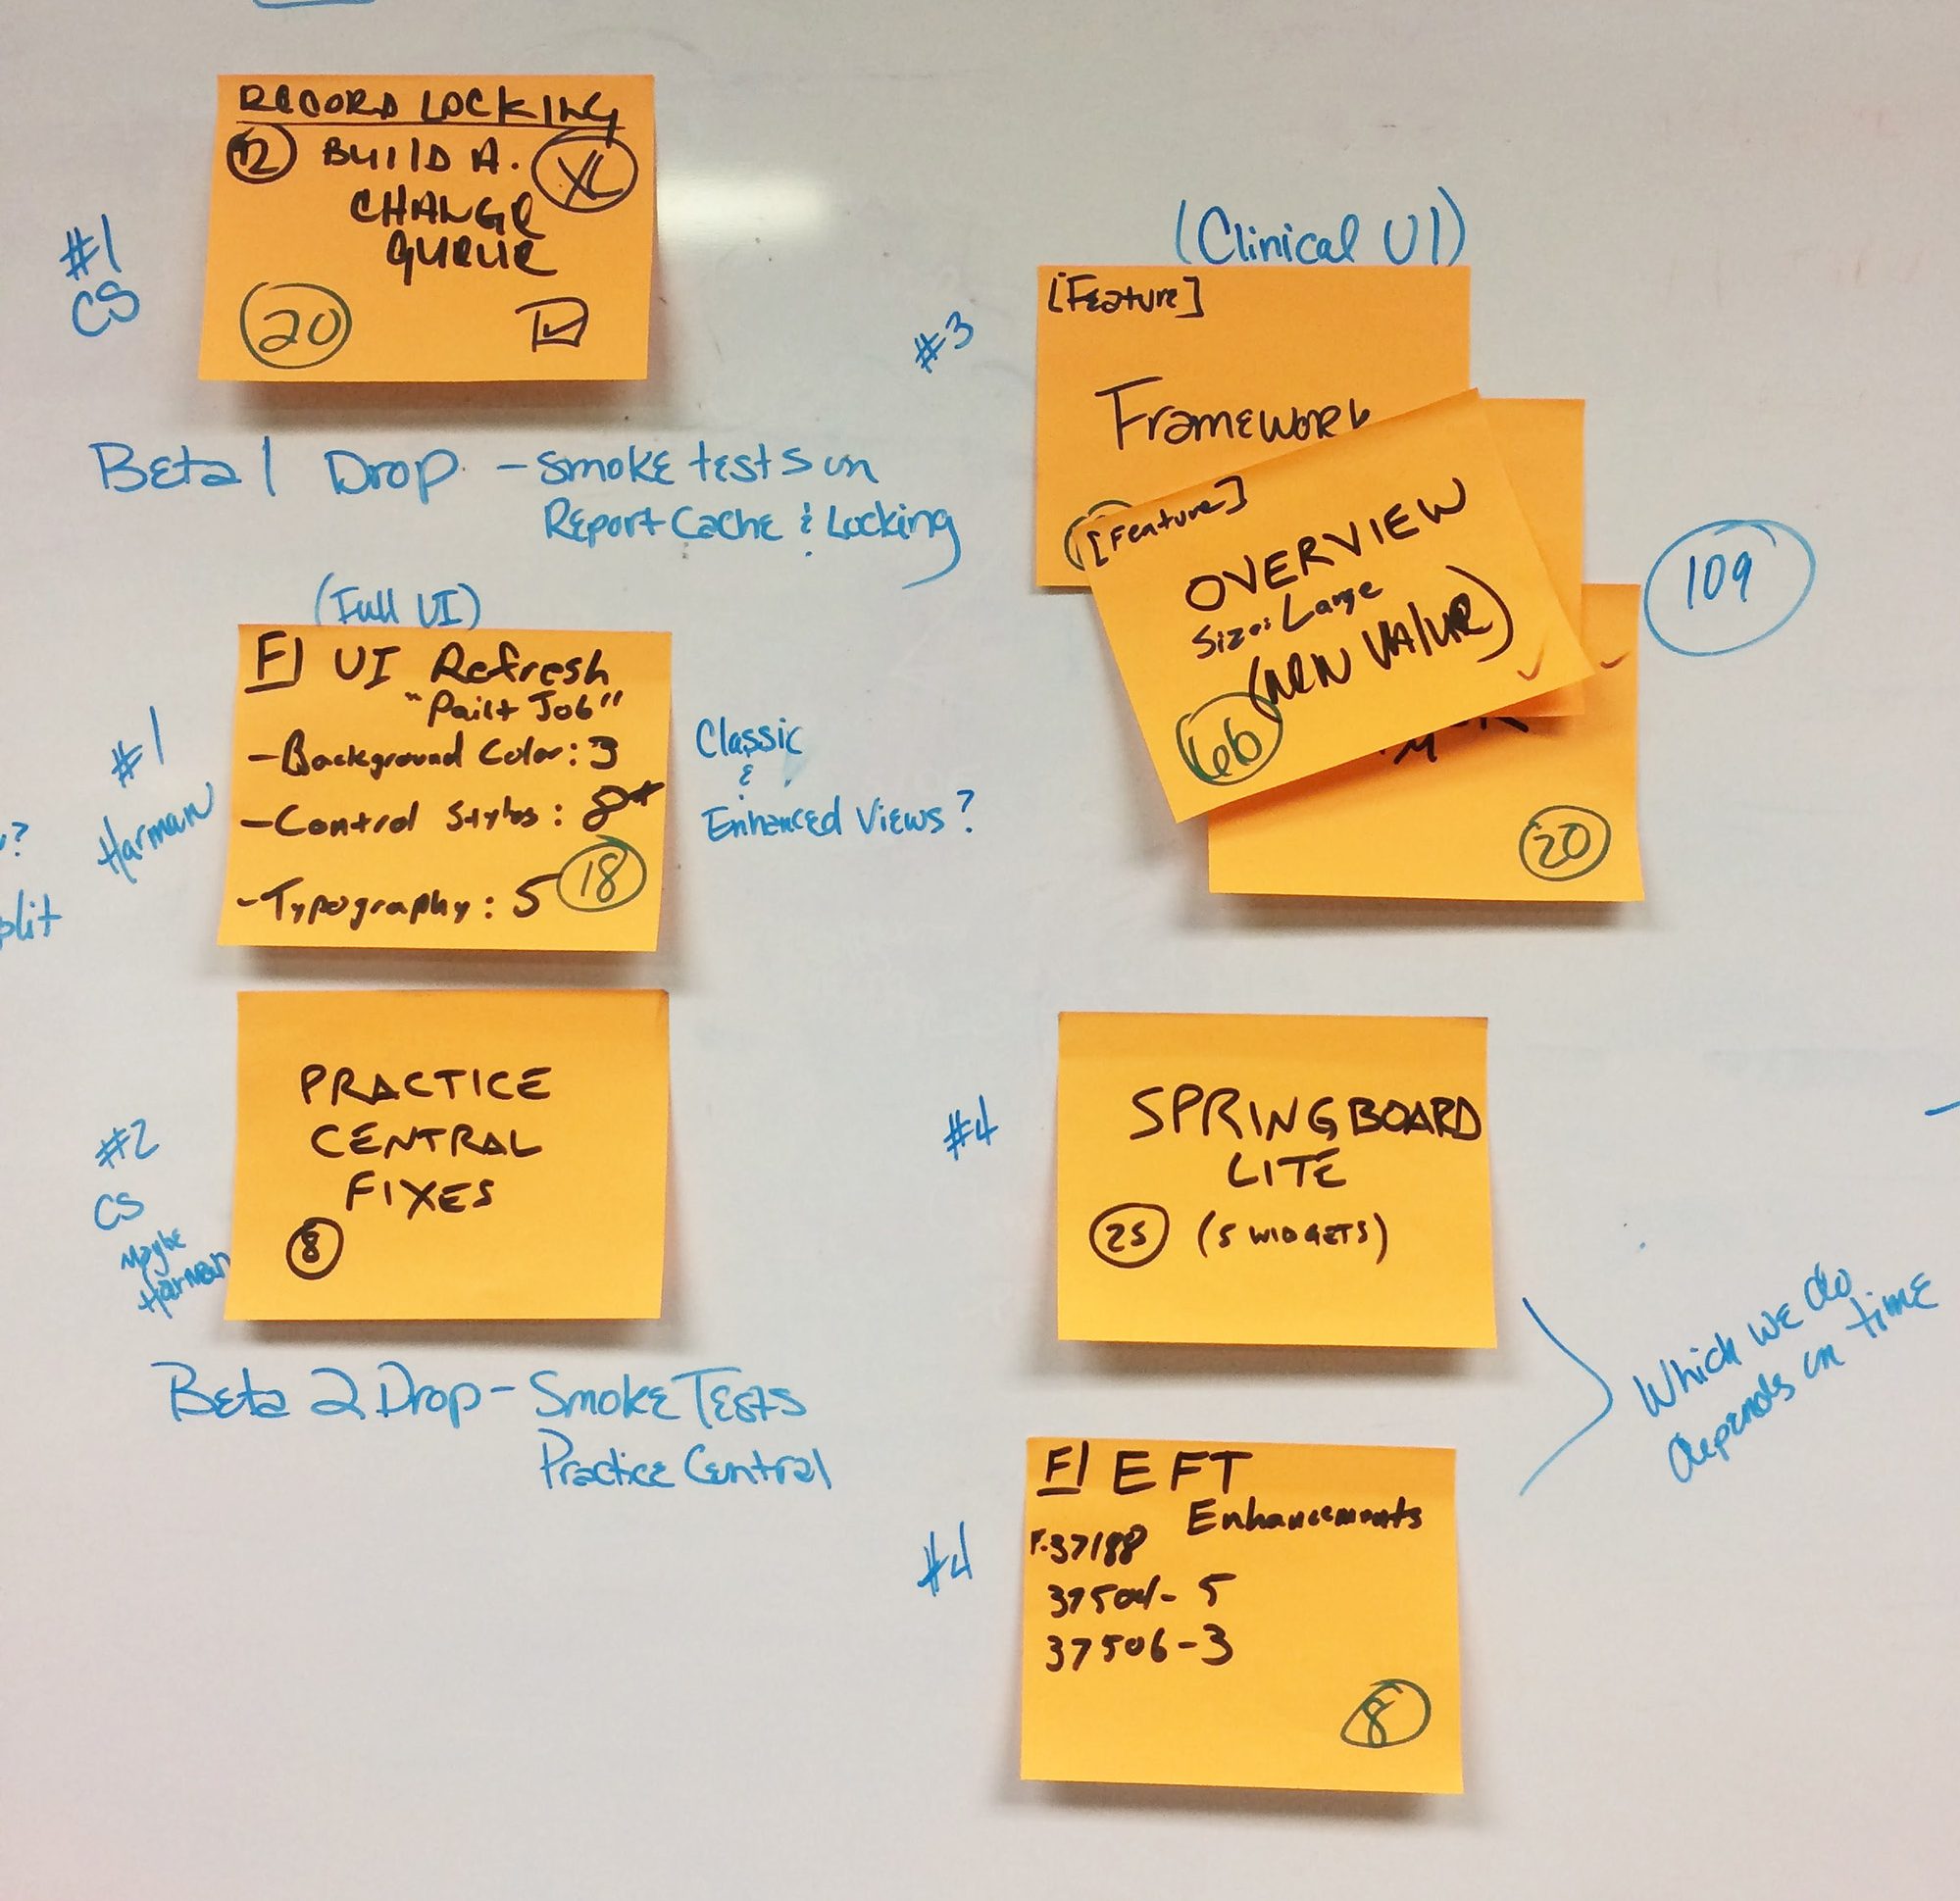 RECORD LOCKING
12 BUILD A.
XL
CHANGE
QUEUE
20
#1
CS
Beta 1 Drop - Smoke tests on
Report Cache & Locking
(Full UI)
F) UI Refresh
"Paint Job"
- Background Color: 3
- Control Styles: 8*
- Typography: 5
18
#1
Harman
Classic
&
Enhanced Views?
?
plit
PRACTICE
CENTRAL
FIXES
8
#2
CS
Maybe
Harman
Beta 2 Drop - Smoke Tests
Practice Central
(Clinical UI)
#3
[Feature]
Framework
[Feature]
OVERVIEW
Size: Large
(NEW VALUE)
66
20
109
#4
SPRINGBOARD
LITE
25 (5 WIDGETS)
Which we do
depends on time
#4
F) EFT
Enhancements
F-37188
37504 - 5
37506 - 3
8